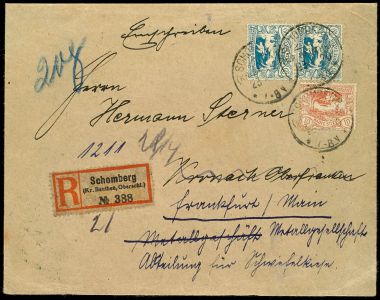 Einschreiben
208
Herrn
Hermann Sterner
1211
Kronach Oberfranken
R Schomberg
(Kr. Beuthen, Oberschl.)
№ 388
Frankfurt / Main
21
Metallgeschäft Metallgesellschaft
Abteilung für Schwefelkiese